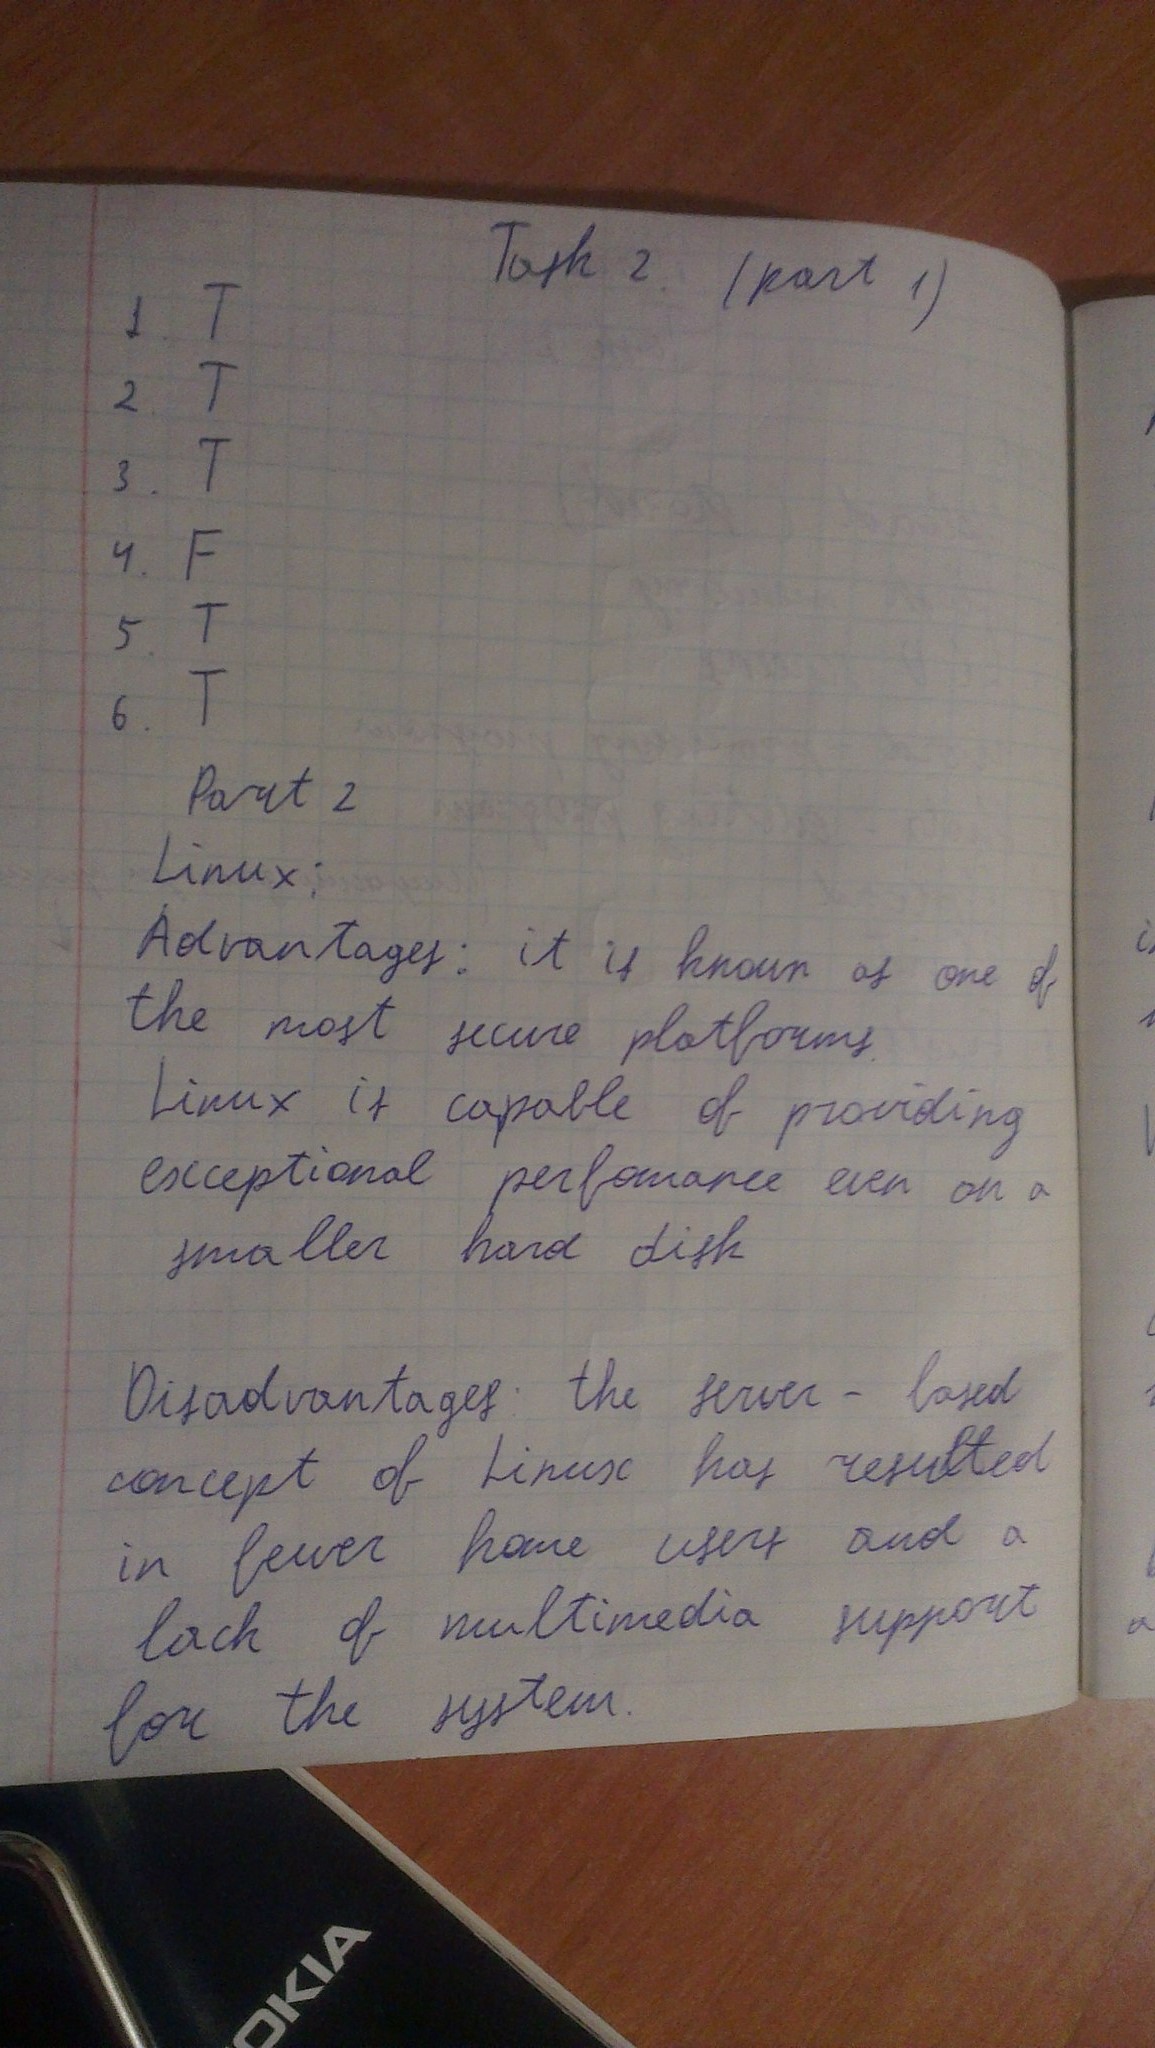 Task 2. (part 1)
1. T
2. T
3. T
4. F
5. T
6. T
Part 2
Linux:
Advantages: it is known as one of
the most secure platforms.
Linux is capable of providing
exceptional perfomance even on a
smaller hard disk
Disadvantages: the server-based
concept of Linux has resulted
in fewer home users and a
lack of multimedia support
for the system.
OKIA